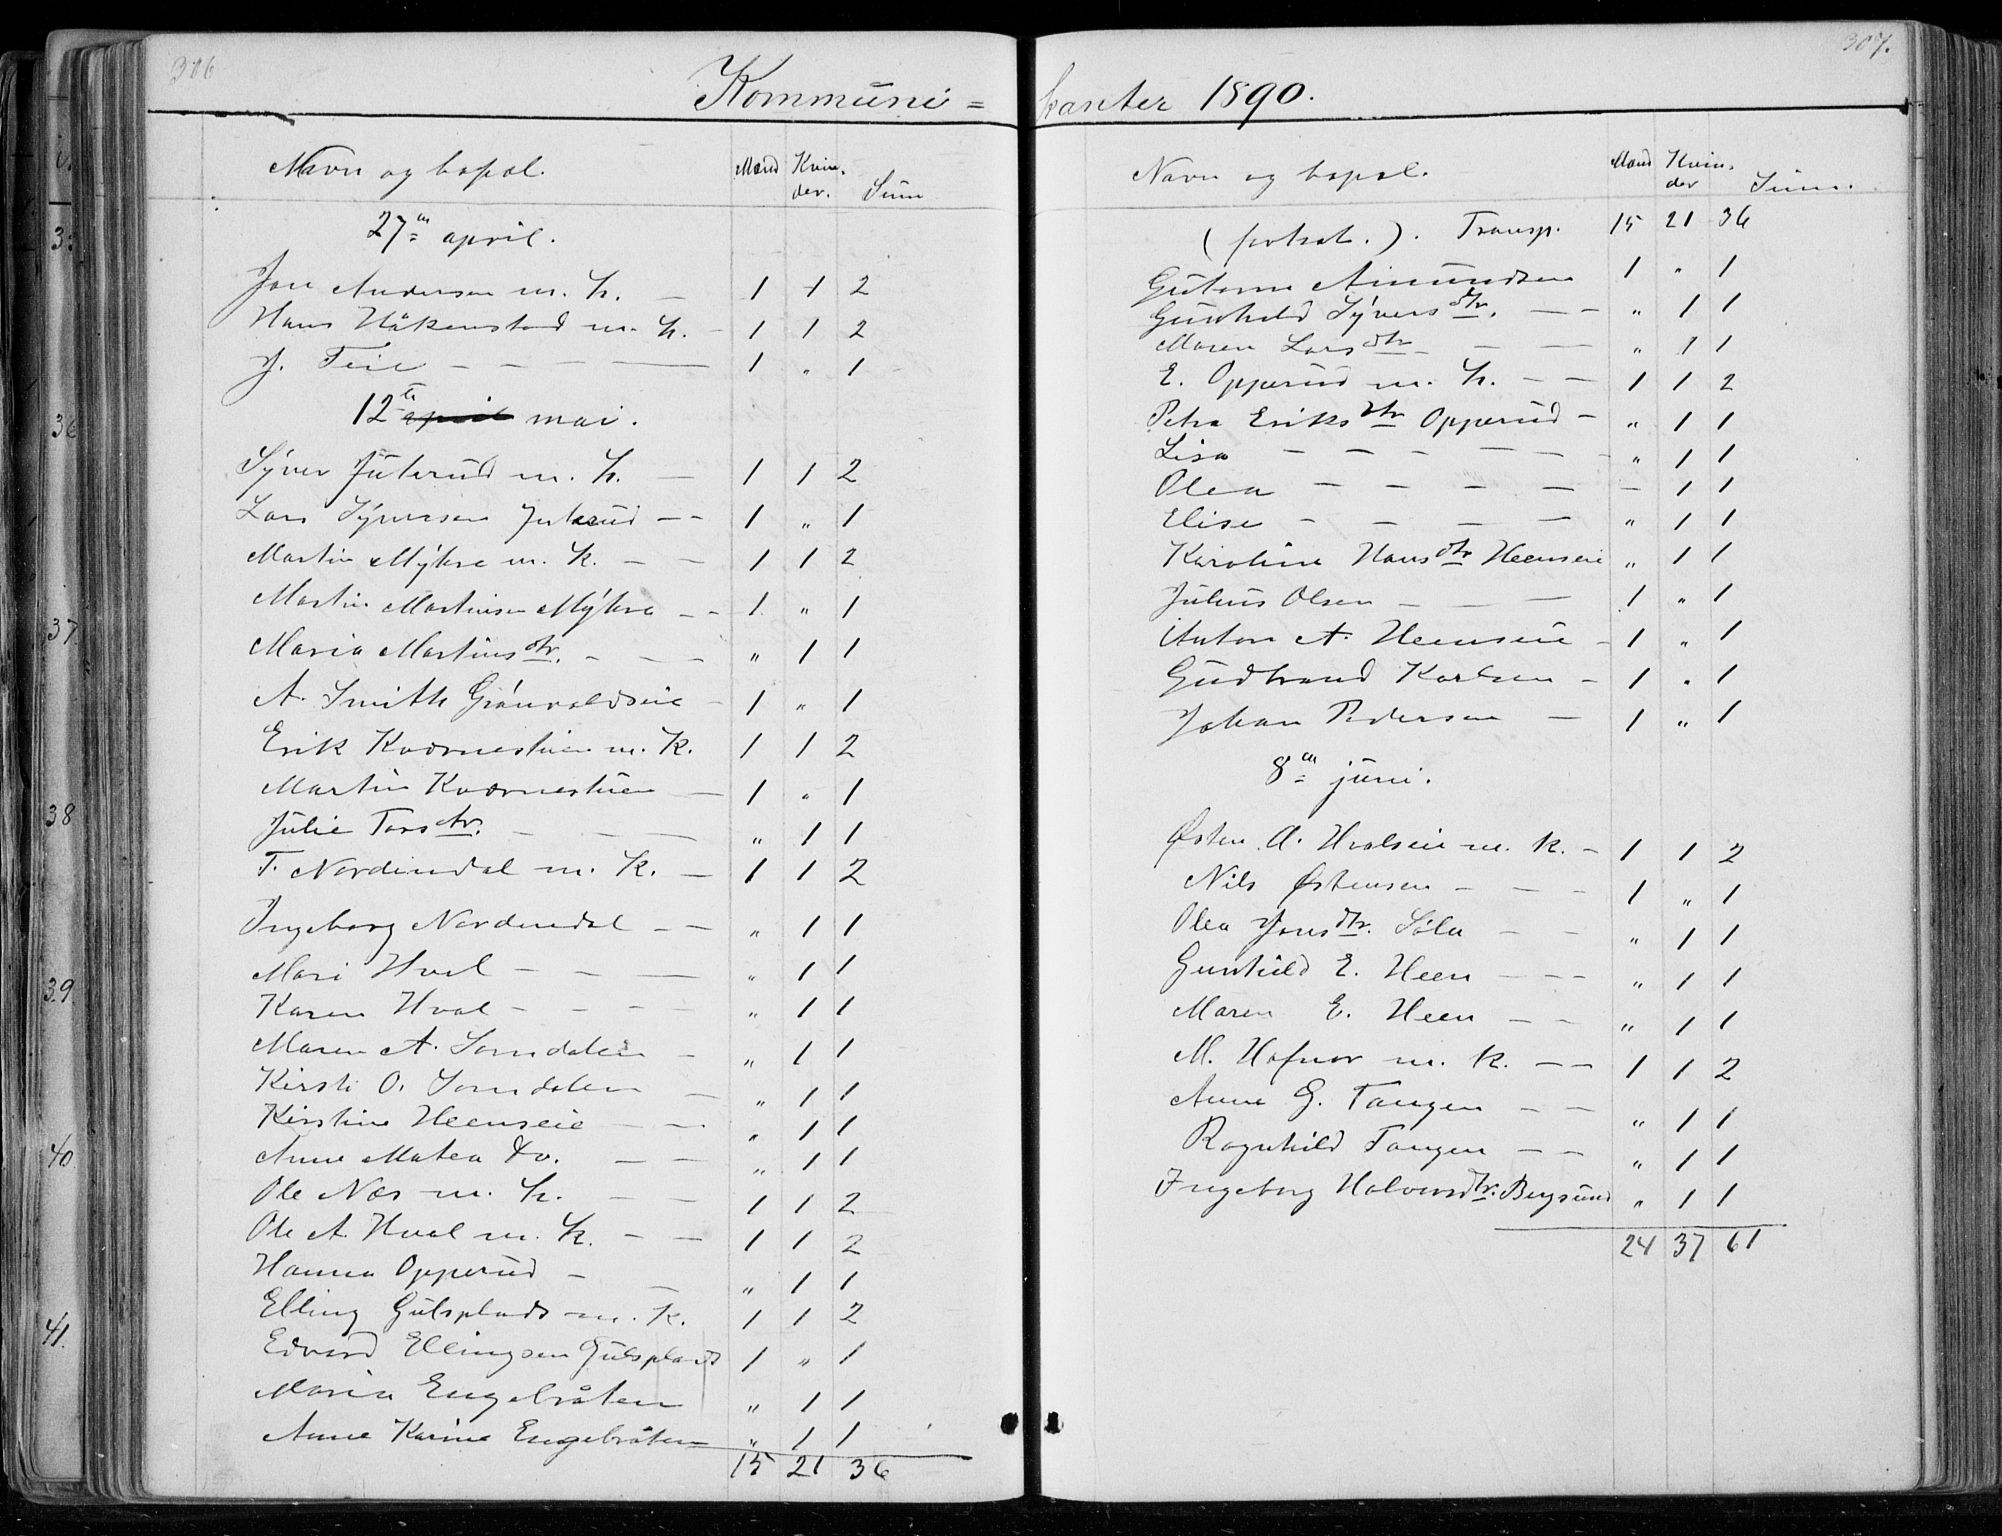 306
Kommuni=
Navn og bopæl. Mænd Kvin-der. Sum
27de april.
Jon Andersen m. k. — 1 1 2
Hans Håkenstad m. k. - 1 1 2
J. Feie — — — 1 „ 1
12te april mai.
Syver Juterud m. k. — 1 1 2
Lars Syversen Juterud — — 1 „ 1
Martin Myhre m. k. — — 1 1 2
Martin Martinsen Myhre — — 1 „ 1
Maria Martinsdtr. — — — „ 1 1
A. Smith Grønvoldseie - 1 „ 1
Erik Kværnestuen m. k. 1 1 2
Martin Kværnestuen — 1 „ 1
Julie Torsdtr. — — — „ 1 1
T. Nordendal m. k. — 1 1 2
Ingeborg Nordendal — — „ 1 1
Mari Hval — — — „ 1 1
Karen Hval — — — — „ 1 1
Maren A. Sørndalen — „ 1 1
Kirsti O. Sørndalen — „ 1 1
Kirstine Heenseie — — „ 1 1
Anne Matea do. — — „ 1 1
Ole Næs m. k. — — 1 1 2
Ole A. Hval m. k. — — 1 1 2
Hanna Opperud — — „ 1 1
Elling Gulsplads m. k. 1 1 2
Edvard Ellingsen Gulsplads 1 „ 1
Maria Engebråten „ 1 1
Anne Karine Engebråten „ 1 1
15 21 36
307.
kanter 1890.
Navn og bopæl. Mænd Kvin-der Sum.
(fortsat.). Transp. 15 21 36
Gutorm Amundsen 1 „ 1
Gunhild Syversdtr. — — „ 1 1
Maren Larsdtr — — „ 1 1
E. Opperud m. k. — — 1 1 2
Petra Eriksdtr Opperud — „ 1 1
Lisa — — — — — — „ 1 1
Olea — — — — — — 1 1
Elise — — — — „ 1 1
Karoline Hansdtr Heenseie „ 1 1
Julius Olsen — — — 1 „ 1
Anton A. Heenseie - 1 „ 1
Gudbrand Karlsen — 1 „ 1
Johan Pedersen — 1 „ 1
8de juni.
Østen A. Hvalseie m. k. — 1 1 2
Nils Østensen — — — 1 „ 1
Olea Jonsdtr. — — „ 1 1
Gunhild E. Heen — — — „ 1 1
Maren E. Heen — — „ 1 1
M. Hafnor m. k. — — 1 1 2
Anne G. Tangen — — „ 1 1
Ragnhild Tangen — — „ 1 1
Ingeborg Halvorsdtr. Bergsund „ 1 1
24 37 61
36
37.
38
39.
40
41.